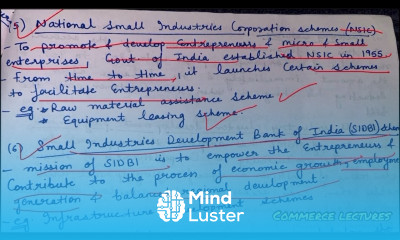 (5) National Small Industries Corporation schemes (NSIC)
- To promote & develop Entrepreneurs & micro & Small
enterprises, Govt of India established NSIC in 1955
- From time to time, it launches Certain Schemes
to facilitate Entrepreneurs.
- eg:- Raw material assistance scheme
* Equipment leasing scheme.
(6) Small Industries Development Bank of India (SIDBI)
- mission of SIDBI is to empower the Entrepreneurs &
Contribute to the process of economic growth, employment
generation & development
- eg Infrastructure schemes
Mind
Luster
COMMERCE LECTURES